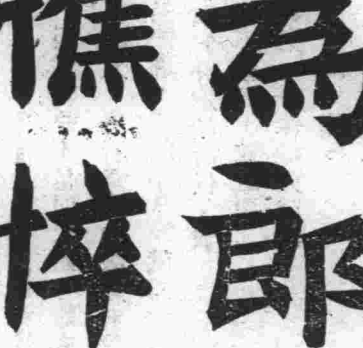 為郎
憔悴